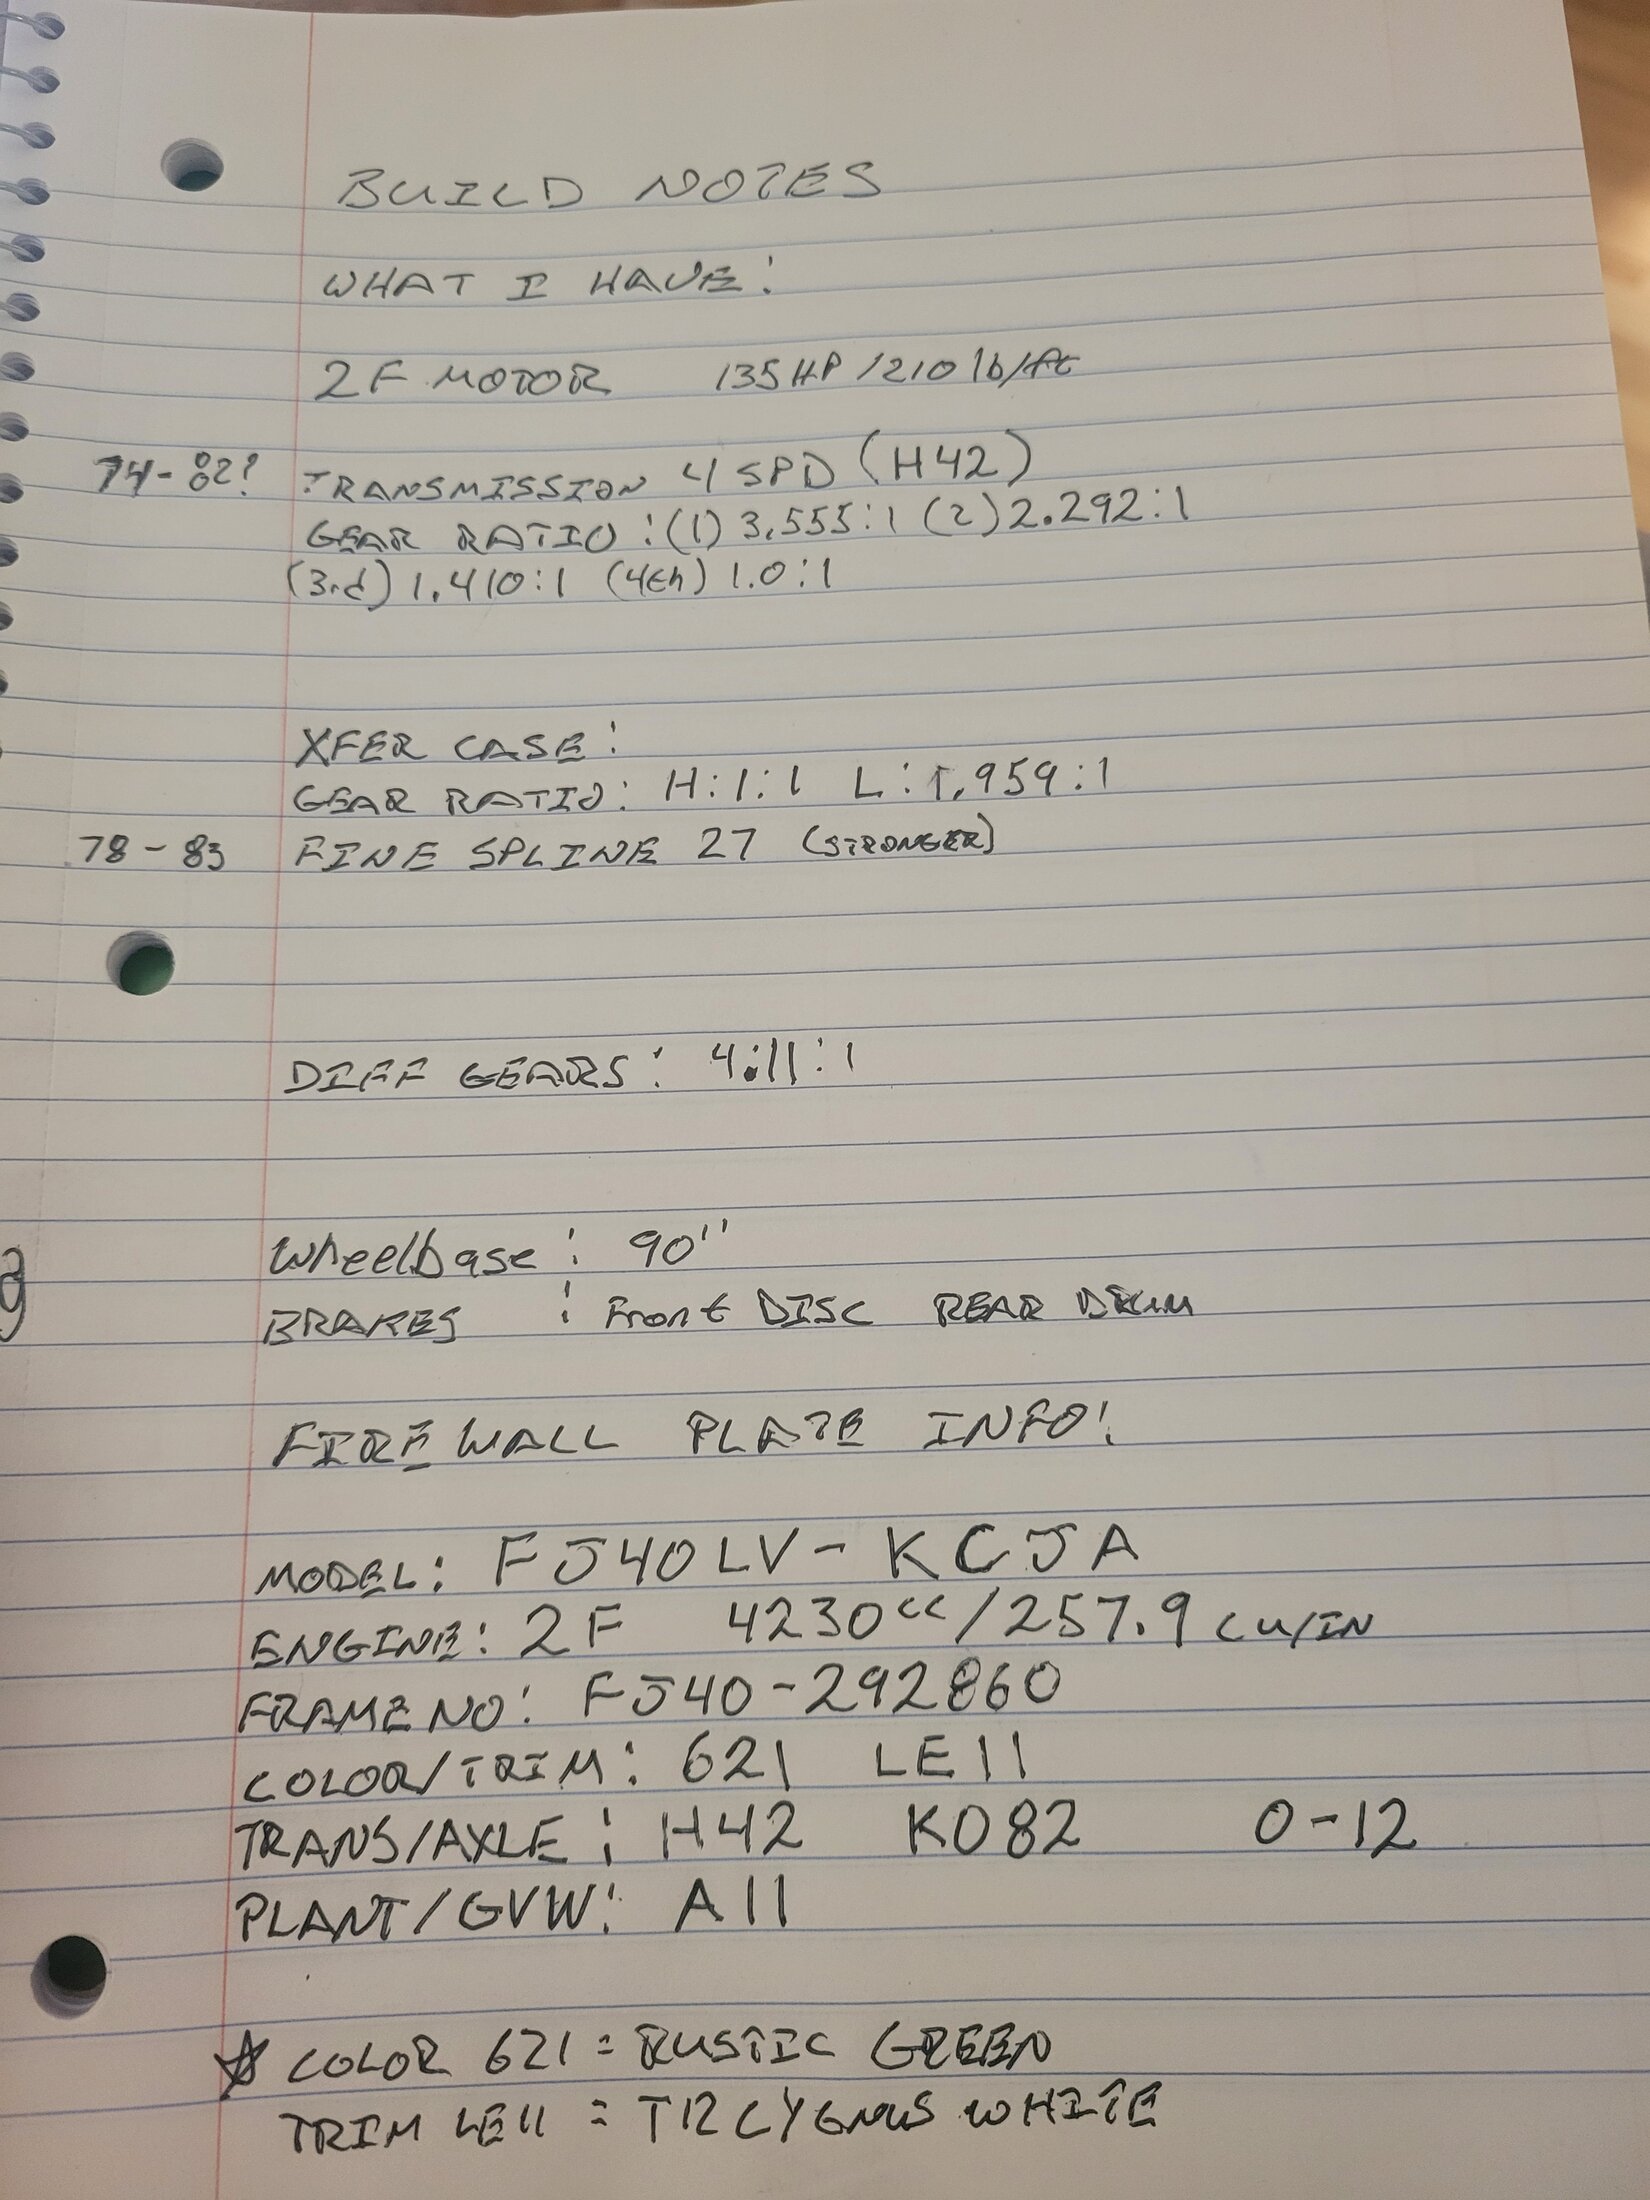 BUILD NOTES
WHAT I HAVE:
2F MOTOR 135HP/210 lb/ft
74-82? TRANSMISSION 4 SPD (H42)
GEAR RATIO: (1) 3.555:1 (2) 2.292:1
(3rd) 1.410:1 (4th) 1.0:1
XFER CASE:
GEAR RATIO: H:1:1 L:1.959:1
78-83 FINE SPLINE 27 (STRONGER)
DIFF GEARS: 4:11:1
Wheelbase: 90"
BRAKES : Front DISC REAR DRUM
FIREWALL PLATE INFO:
MODEL: FJ40LV-KCJA
ENGINE: 2F 4230cc/257.9 cu/IN
FRAME NO: FJ40-292860
COLOR/TRIM: 621 LE11
TRANS/AXLE: H42 K082 0-12
PLANT/GVW: A11
COLOR 621 = RUSTIC GREEN
TRIM LE11 = T12 CYGNUS WHITE